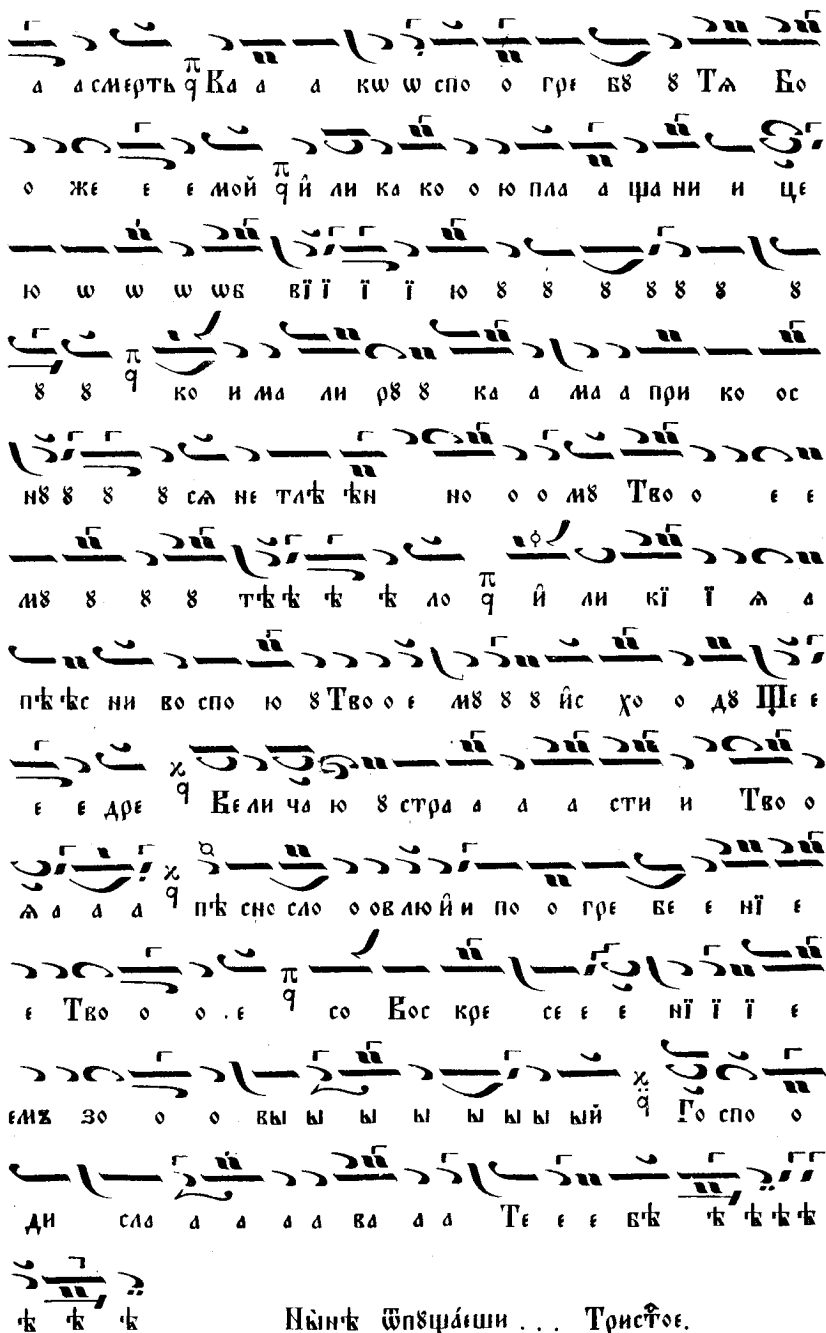 а а смерть Ка а а кѡ ѡ спо о гре бꙋ ꙋ Тѧ Бо
о же е е мой и҆ ли ка ко о ю пла а ща ни и це
ю ѡ ѡ ѡ ѡб вї ї ї ї ю ꙋ ꙋ ꙋ ꙋ ꙋ ꙋ ꙋ
ꙋ ꙋ ко и ма ли рꙋ ꙋ ка а ма а при ко ос
нꙋ ꙋ ꙋ ꙋ сѧ не тлѣ ѣн но о о мꙋ Тво о е е
мꙋ ꙋ ꙋ ꙋ тѣ ѣ ѣ ѣ ло и҆ ли кї ї ѧ а
пѣ ѣс ни во спо ю ꙋ Тво о е мꙋ ꙋ ꙋ и҆с хо о дꙋ Ще е
е е дре Ве ли ча ю ꙋ стра а а а сти и Тво о
ѧ а а а пѣ сно сло о ов лю й и по о гре бе е нї е
е Тво о о е со Вос кре се е е нї ї ї е
емъ зо о о вы ы ы ы ы ы ый Го спо о
ди сла а а а а ва а а Те е е бѣ ѣ ѣ ѣ ѣ
ѣ ѣ ѣ Ны̀нѣ ѿпꙋща́еши ... Трист҃ое.